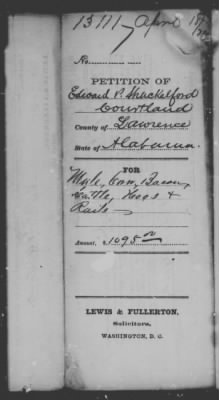 13111 April 15
No.
PETITION OF
Edward P. Shackelford
Courtland
County of Lawrence
State of Alabama.
FOR
Mule, Corn, Bacon,
Cattle, Hogs &
Rails
Amount, $ 1095.00
LEWIS & FULLERTON,
Solicitors,
WASHINGTON, D. C.